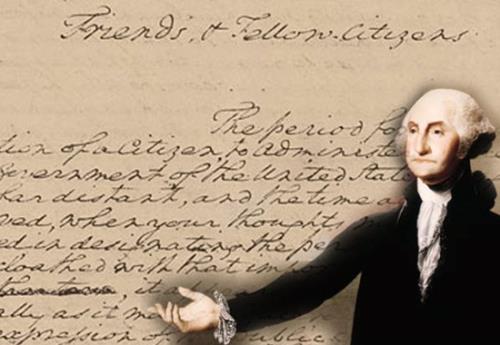 Friends, & Fellow-Citizens
The period fo
tion of a Citizen, to administe
Government of the United State
far distant, and the time a
ved, when your thoughts, m
ed in designating the per
cloathed with that impor
it
ally as it ma
expression of the public